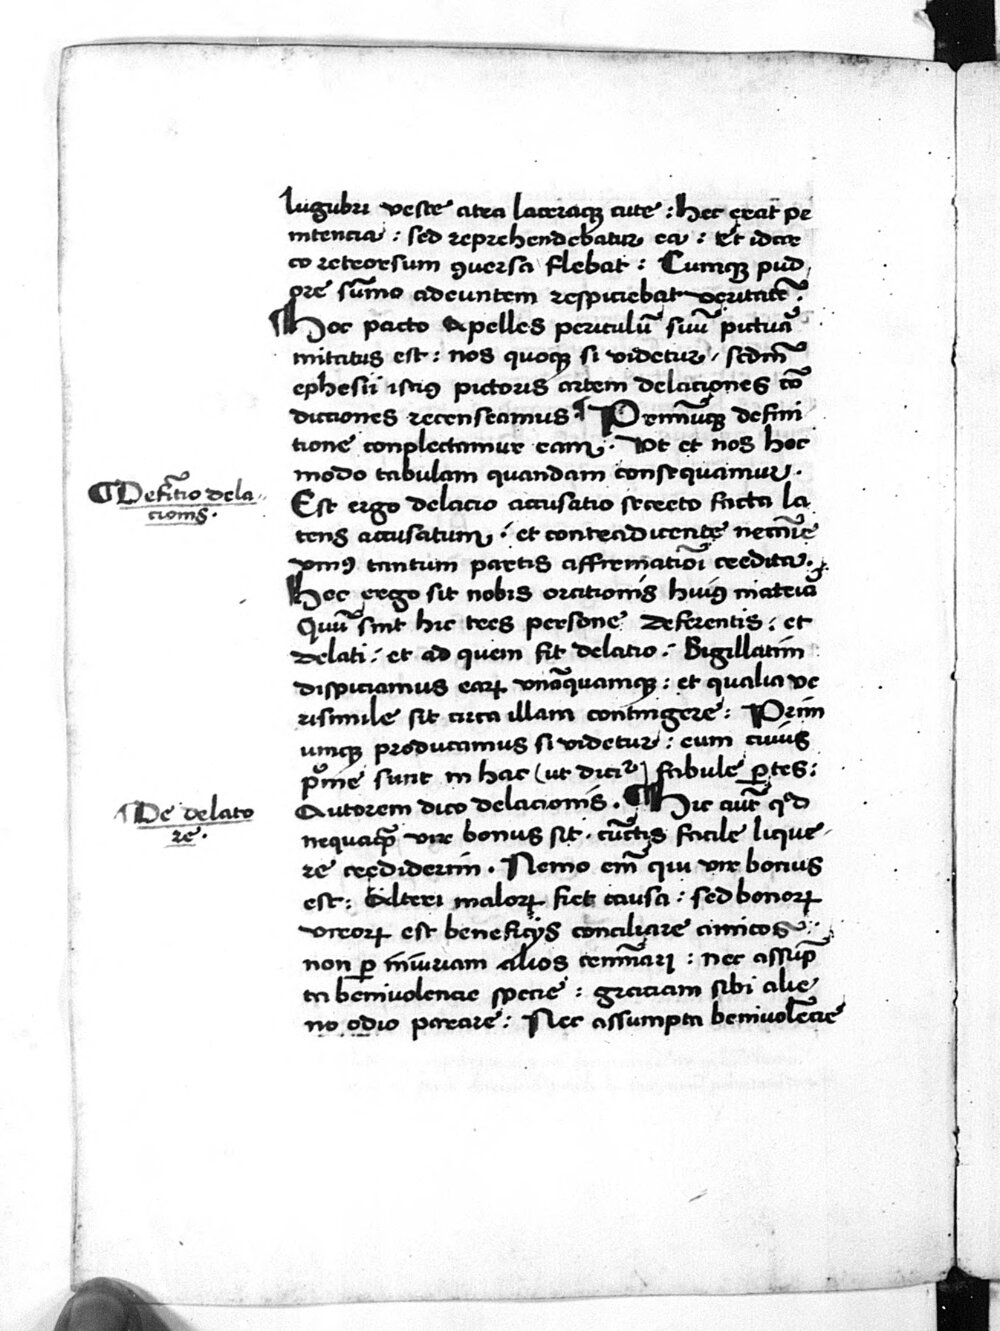 lugubri veste atra laceraqꝫ cute : hec erat pe
nitencia : sed reprehendebatur ea : et idcir
co retrorsum ꝯversa flebat : Cumqꝫ pud
ore su᷒mo adeuntem respiciebat veritatē .
¶ Hoc pacto Apelles periculū suū pictura
mitatus est : nos quoqꝫ si videtur / sedm̄
ephesii istiꝯ pictoris artem delaciones cō
dictiones recenseamus . ¶ Primūqꝫ defini
tione conplectamur eam . Vt et nos hoc
modo tabulam quandam consequamur .
¶ Defītio dela
cionis .
Est ergo delacio accusatio secreto facta la
tens accusatum / et contradicente nemīe
vniꝯ tantum partis affirmatiōi credita .
Hec ergo sit nobis orationis huiꝯ materia
Quū sint hic tres persone deferentis : et
delati : et ad quem fit delatio : Sigillatim
dispiciamus earꝝ vnāquamqꝫ : et qualia ve
risimile sit circa illam contingere : Prim
umqꝫ producamus si videtur : eum cuius
pͥme sunt in hac ( ut dicit᷑ ) fabule ꝑtes :
¶ De delato
re .
Autorem dico delacionis . ¶ Hic aut̄ qͦd
nequaqꝫ vir bonus sit . cūctis facile lique
re crediderim . Nemo em̄ qui vir bonus
est : Alteri malorꝝ fiet causa : sed bonorꝝ
virorꝝ est beneficijs conciliare amicos :
non ꝑ iniuriam alios crimīari : nec assūp
ta beniuolencie specie : graciam sibi alie
no odio parare : Nec assumpta beniuolēcie